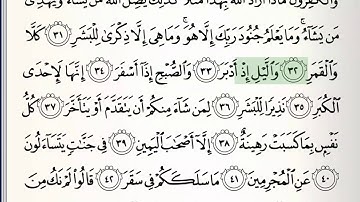 وَالْكَافِرُونَ مَاذَا أَرَادَ اللَّهُ بِهَٰذَا مَثَلًا كَذَٰلِكَ يُضِلُّ اللَّهُ مَن يَشَاءُ وَيَهْدِي
مَن يَشَاءُ وَمَا يَعْلَمُ جُنُودَ رَبِّكَ إِلَّا هُوَ وَمَا هِيَ إِلَّا ذِكْرَىٰ لِلْبَشَرِ ٣١ كَلَّا
وَالْقَمَرِ ٣٢ وَاللَّيْلِ إِذْ أَدْبَرَ ٣٣ وَالصُّبْحِ إِذَا أَسْفَرَ ٣٤ إِنَّهَا لَإِحْدَى
الْكُبَرِ ٣٥ نَذِيرًا لِّلْبَشَرِ ٣٦ لِمَن شَاءَ مِنكُمْ أَن يَتَقَدَّمَ أَوْ يَتَأَخَّرَ ٣٧ كُلُّ
نَفْسٍ بِمَا كَسَبَتْ رَهِينَةٌ ٣٨ إِلَّا أَصْحَابَ الْيَمِينِ ٣٩ فِي جَنَّاتٍ يَتَسَاءَلُونَ
٤٠ عَنِ الْمُجْرِمِينَ ٤١ مَا سَلَكَكُمْ فِي سَقَرَ ٤٢ قَالُوا لَمْ نَكُ مِنَ